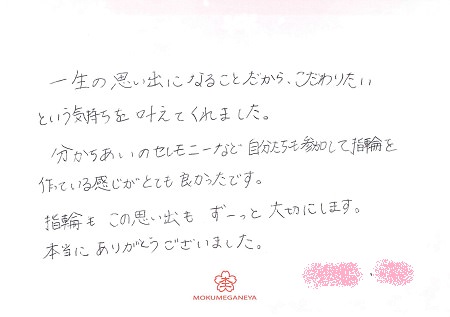 一生の思い出になることだから、こだわりたい
という気持ちを叶えてくれました。
分かちあいのセレモニーなど自分たちも参加して指輪を
作っている感じがとても良かったです。
指輪も この思い出も ずーっと大切にします。
本当にありがとうございました。
杢
MOKUMEGANEYA